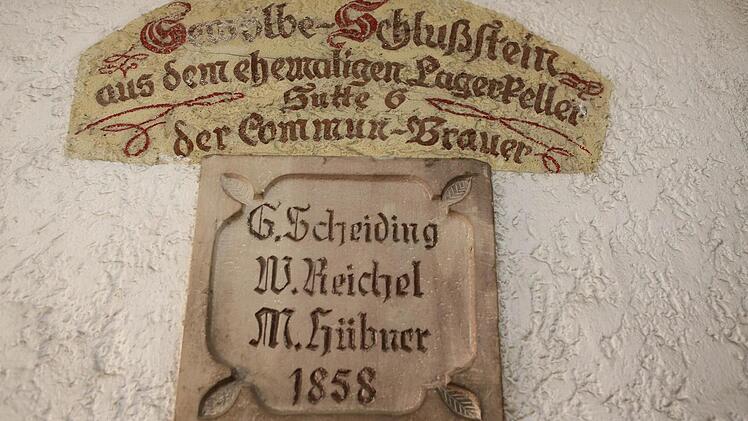 Gewölbe-Schlußstein
aus dem ehemaligen Lagerkeller
Sutte 6
der Commun-Brauer
G. Scheiding
W. Reichel
M. Hübner
1858